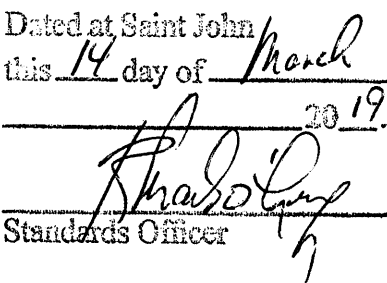 Dated at Saint John
this 14 day of March
20 19.
Standards Officer